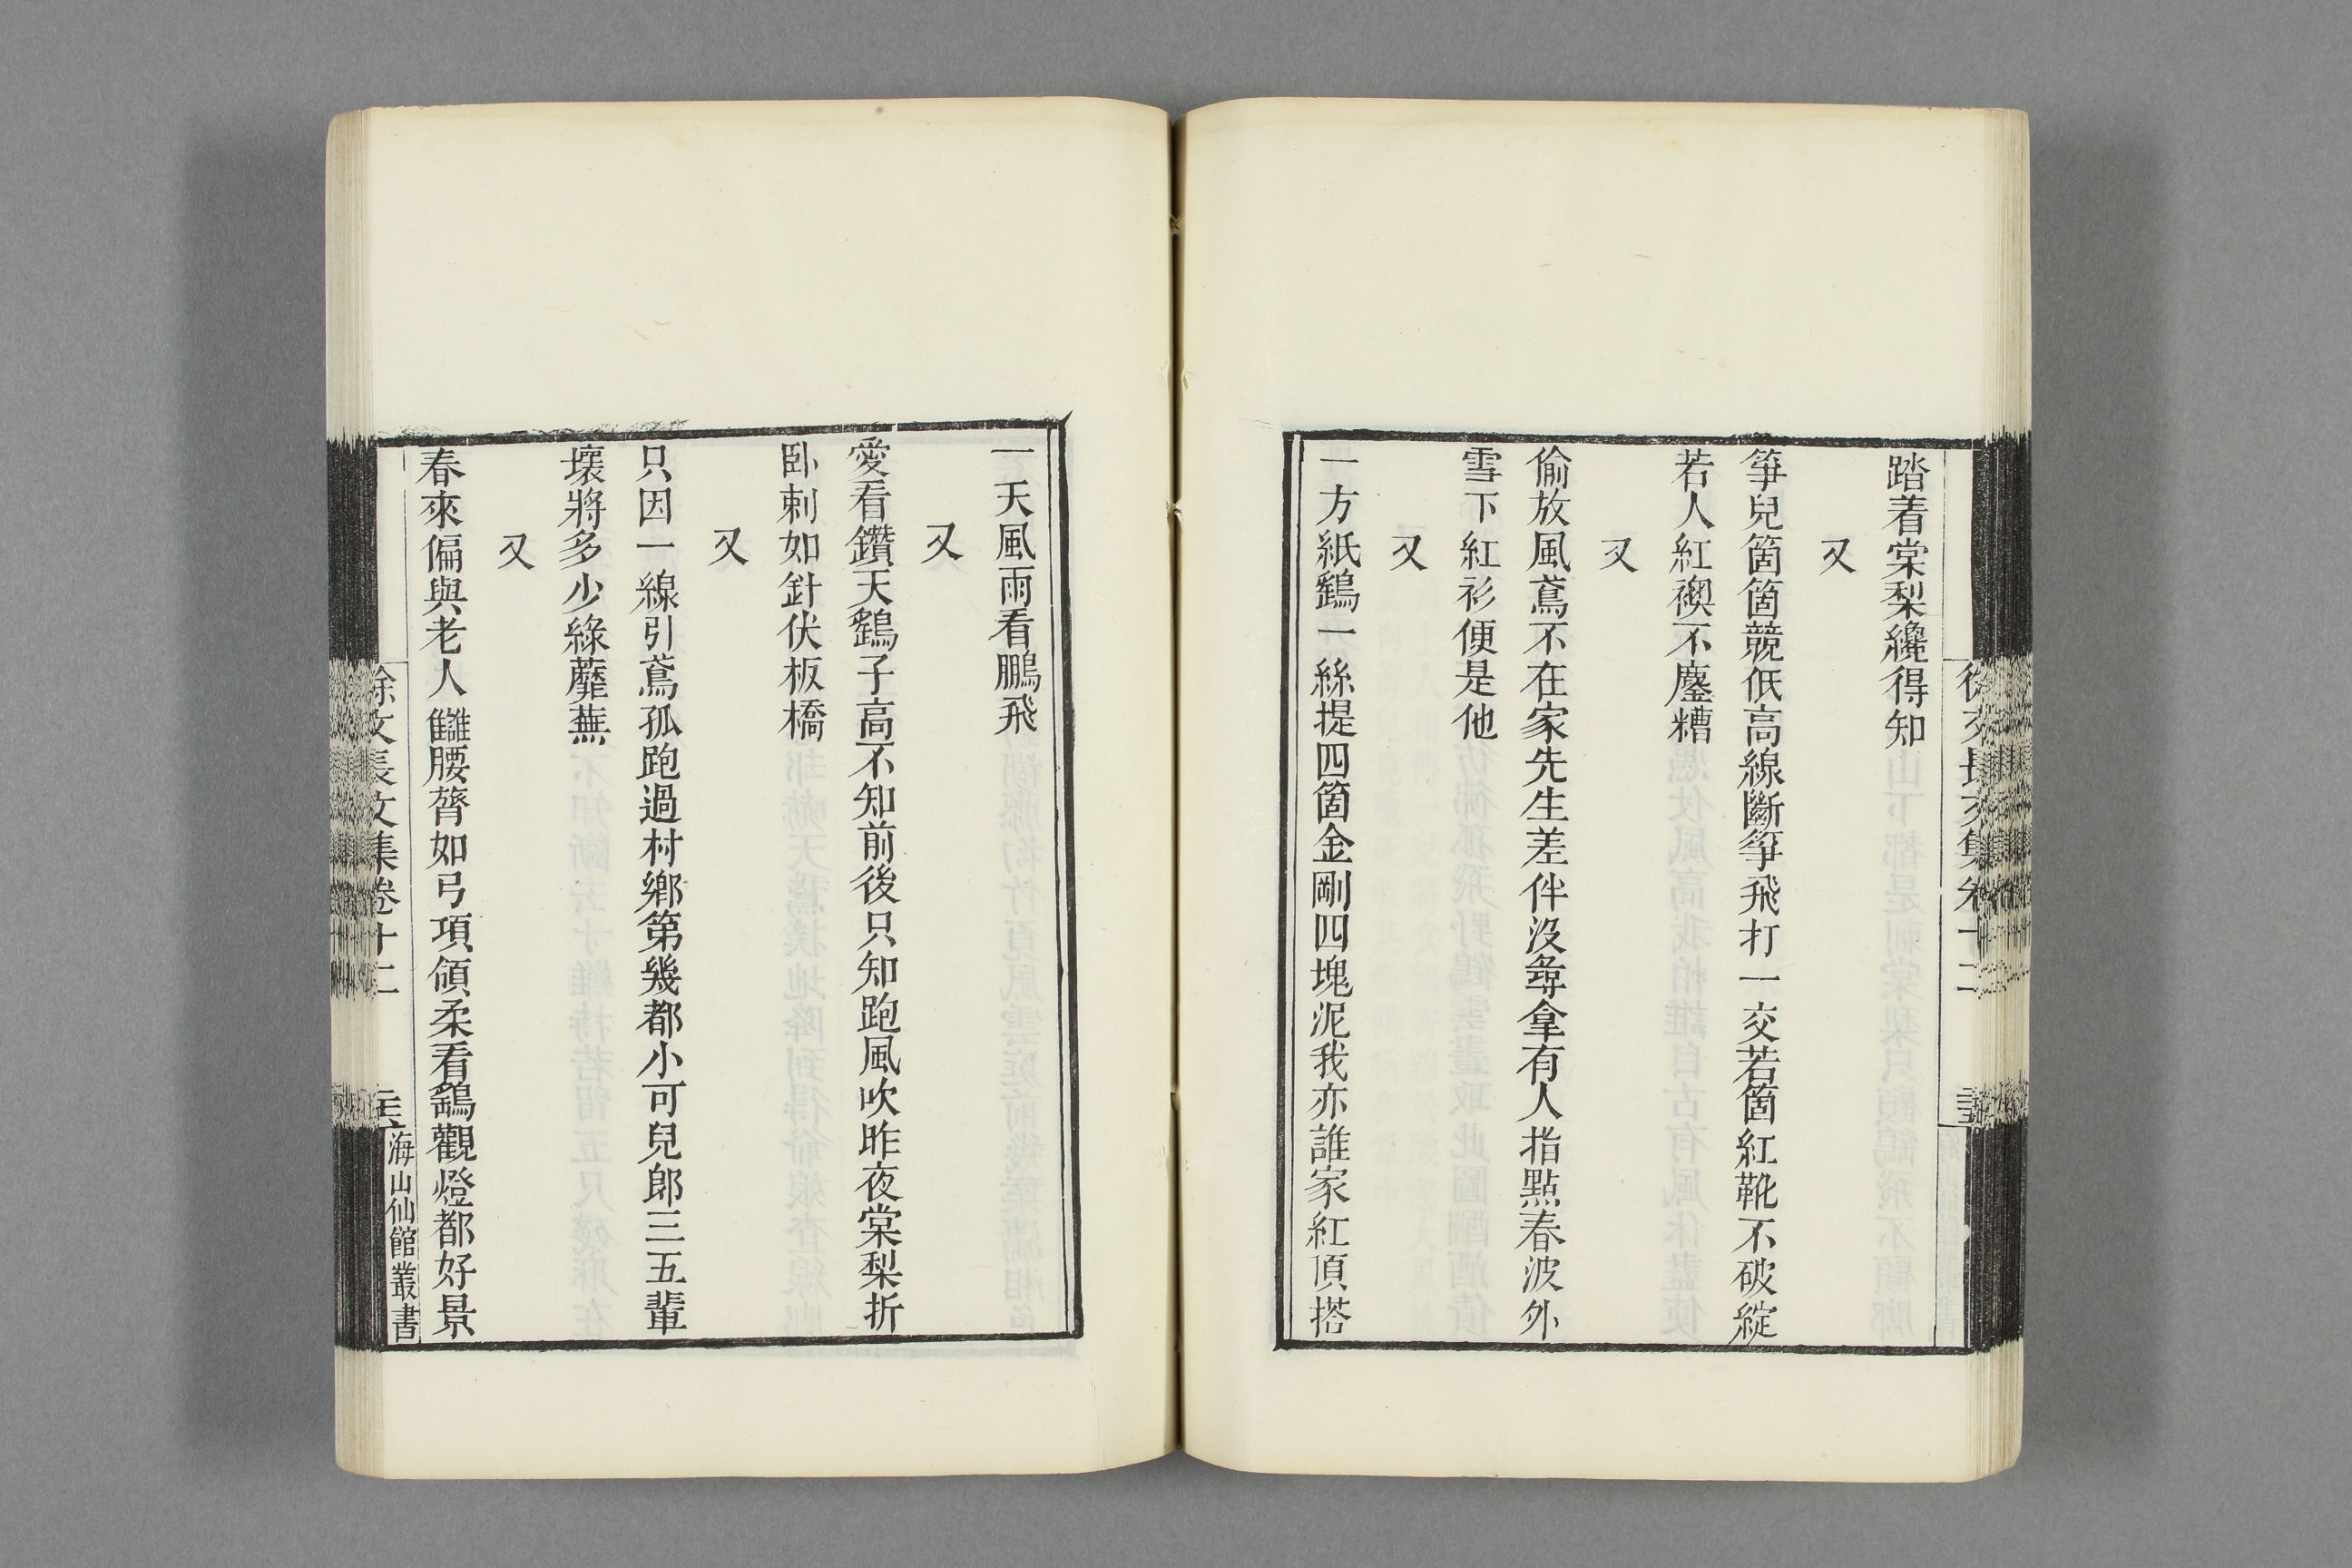 踏着棠梨纔得知
又
筝兒箇箇競低高線斷筝飛打一交若箇紅靴不破綻
若人紅襖不鏖糟
又
偷放風鳶不在家先生差伴沒尋拿有人指點春波外
雪下紅衫便是他
又
一方紙鷂一絲提四箇金剛四塊泥我亦誰家紅頂搭
一天風雨看鵬飛
又
愛看鑽天鷂子高不知前後只知跑風吹昨夜棠梨折
卧刺如針伏板橋
又
只因一線引鳶孤跑過村鄉第幾都小可兒郎三五輩
壞將多少綠蘼蕪
又
春來偏與老人讎腰膂如弓項領柔看鷂觀燈都好景
徐文長文集卷十二
海山仙館叢書